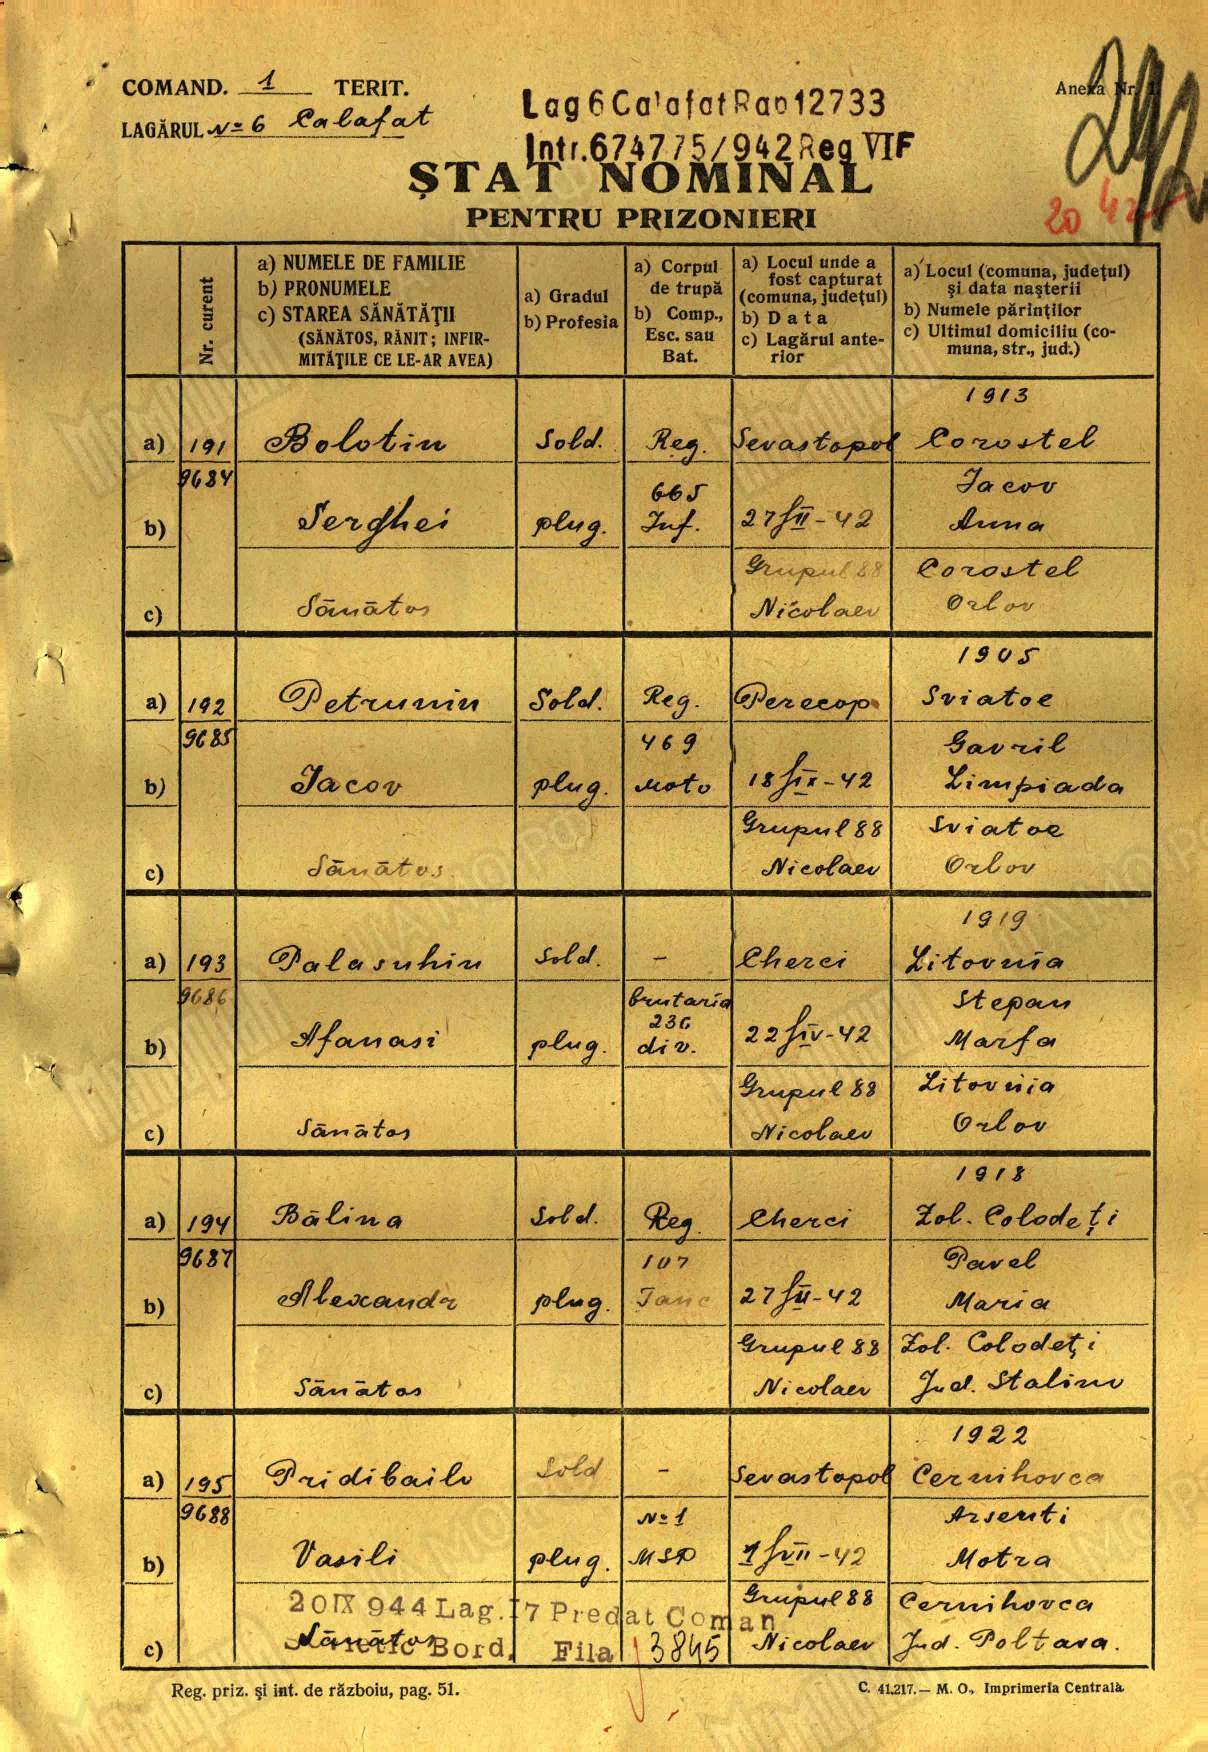 COMAND. 1 TERIT.
LAGĂRUL No 6 Calafat
Anexa Nr. 1
Lag 6 Calafat Rap 12733
Intr. 674775/942 Reg VIF
ȘTAT NOMINAL
PENTRU PRIZONIERI
20 42
Nr. curent
a) NUMELE DE FAMILIE
b) PRONUMELE
c) STAREA SĂNĂTĂȚII
(SĂNĂTOS, RĂNIT; INFIR-
MITĂȚILE CE LE-AR AVEA)
a) Gradul
b) Profesia
a) Corpul
de trupă
b) Comp.,
Esc. sau
Bat.
a) Locul unde a
fost capturat
(comuna, județul)
b) Data
c) Lagărul ante-
rior
a) Locul (comuna, județul)
și data nașterii
b) Numele părinților
c) Ultimul domiciliu (co-
muna, str., jud.)
1913
a) 191 Bolotin Sold. Reg. Sevastopol Corostel
9684 665 Iacov
b) Serghei plug. Inf. 27/VII-42 Anna
Grupul 88 Corostel
c) Sănătos Nicolaev Orlov
1905
a) 192 Petrunin Sold. Reg. Perecop Sviatoe
9685 469 Gavril
b) Iacov plug. Moto 18/IX-42 Limpiada
Grupul 88 Sviatoe
c) Sănătos Nicolaev Orlov
1919
a) 193 Palasuhin Sold. - Cherci Litovnia
9686 brutaria Stepan
236
b) Afanasi plug. div. 22/IV-42 Marfa
Grupul 88 Litovnia
c) Sănătos Nicolaev Orlov
1918
a) 194 Bălina Sold. Reg. Cherci Zol. Colodeți
9687 107 Pavel
b) Alexandr plug. Tanc 27/VII-42 Maria
Grupul 88 Zol. Colodeți
c) Sănătos Nicolaev Jud. Stalino
1922
a) 195 Pridibailo Sold - Sevastopol Cernihovca
9688 No 1 Arsenti
b) Vasili plug. MSP 1/VII-42 Motra
Grupul 88 Cernihovca
20 IX 944 Lag. 17 Predat Coman
c) Sănătos Nicolaev Jud. Poltava.
Bord. Fila 3845
Reg. priz. și int. de războiu, pag. 51.
C. 41.217.— M. O., Imprimeria Centrală